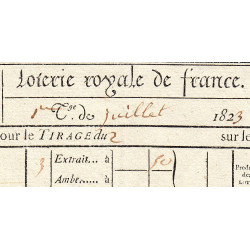 Loterie royale de france.
1re Tge. de juillet 1823
our le TIRAGE du 2 sur le
3 Extrait... à 50
Ambe..... à
Prod
de